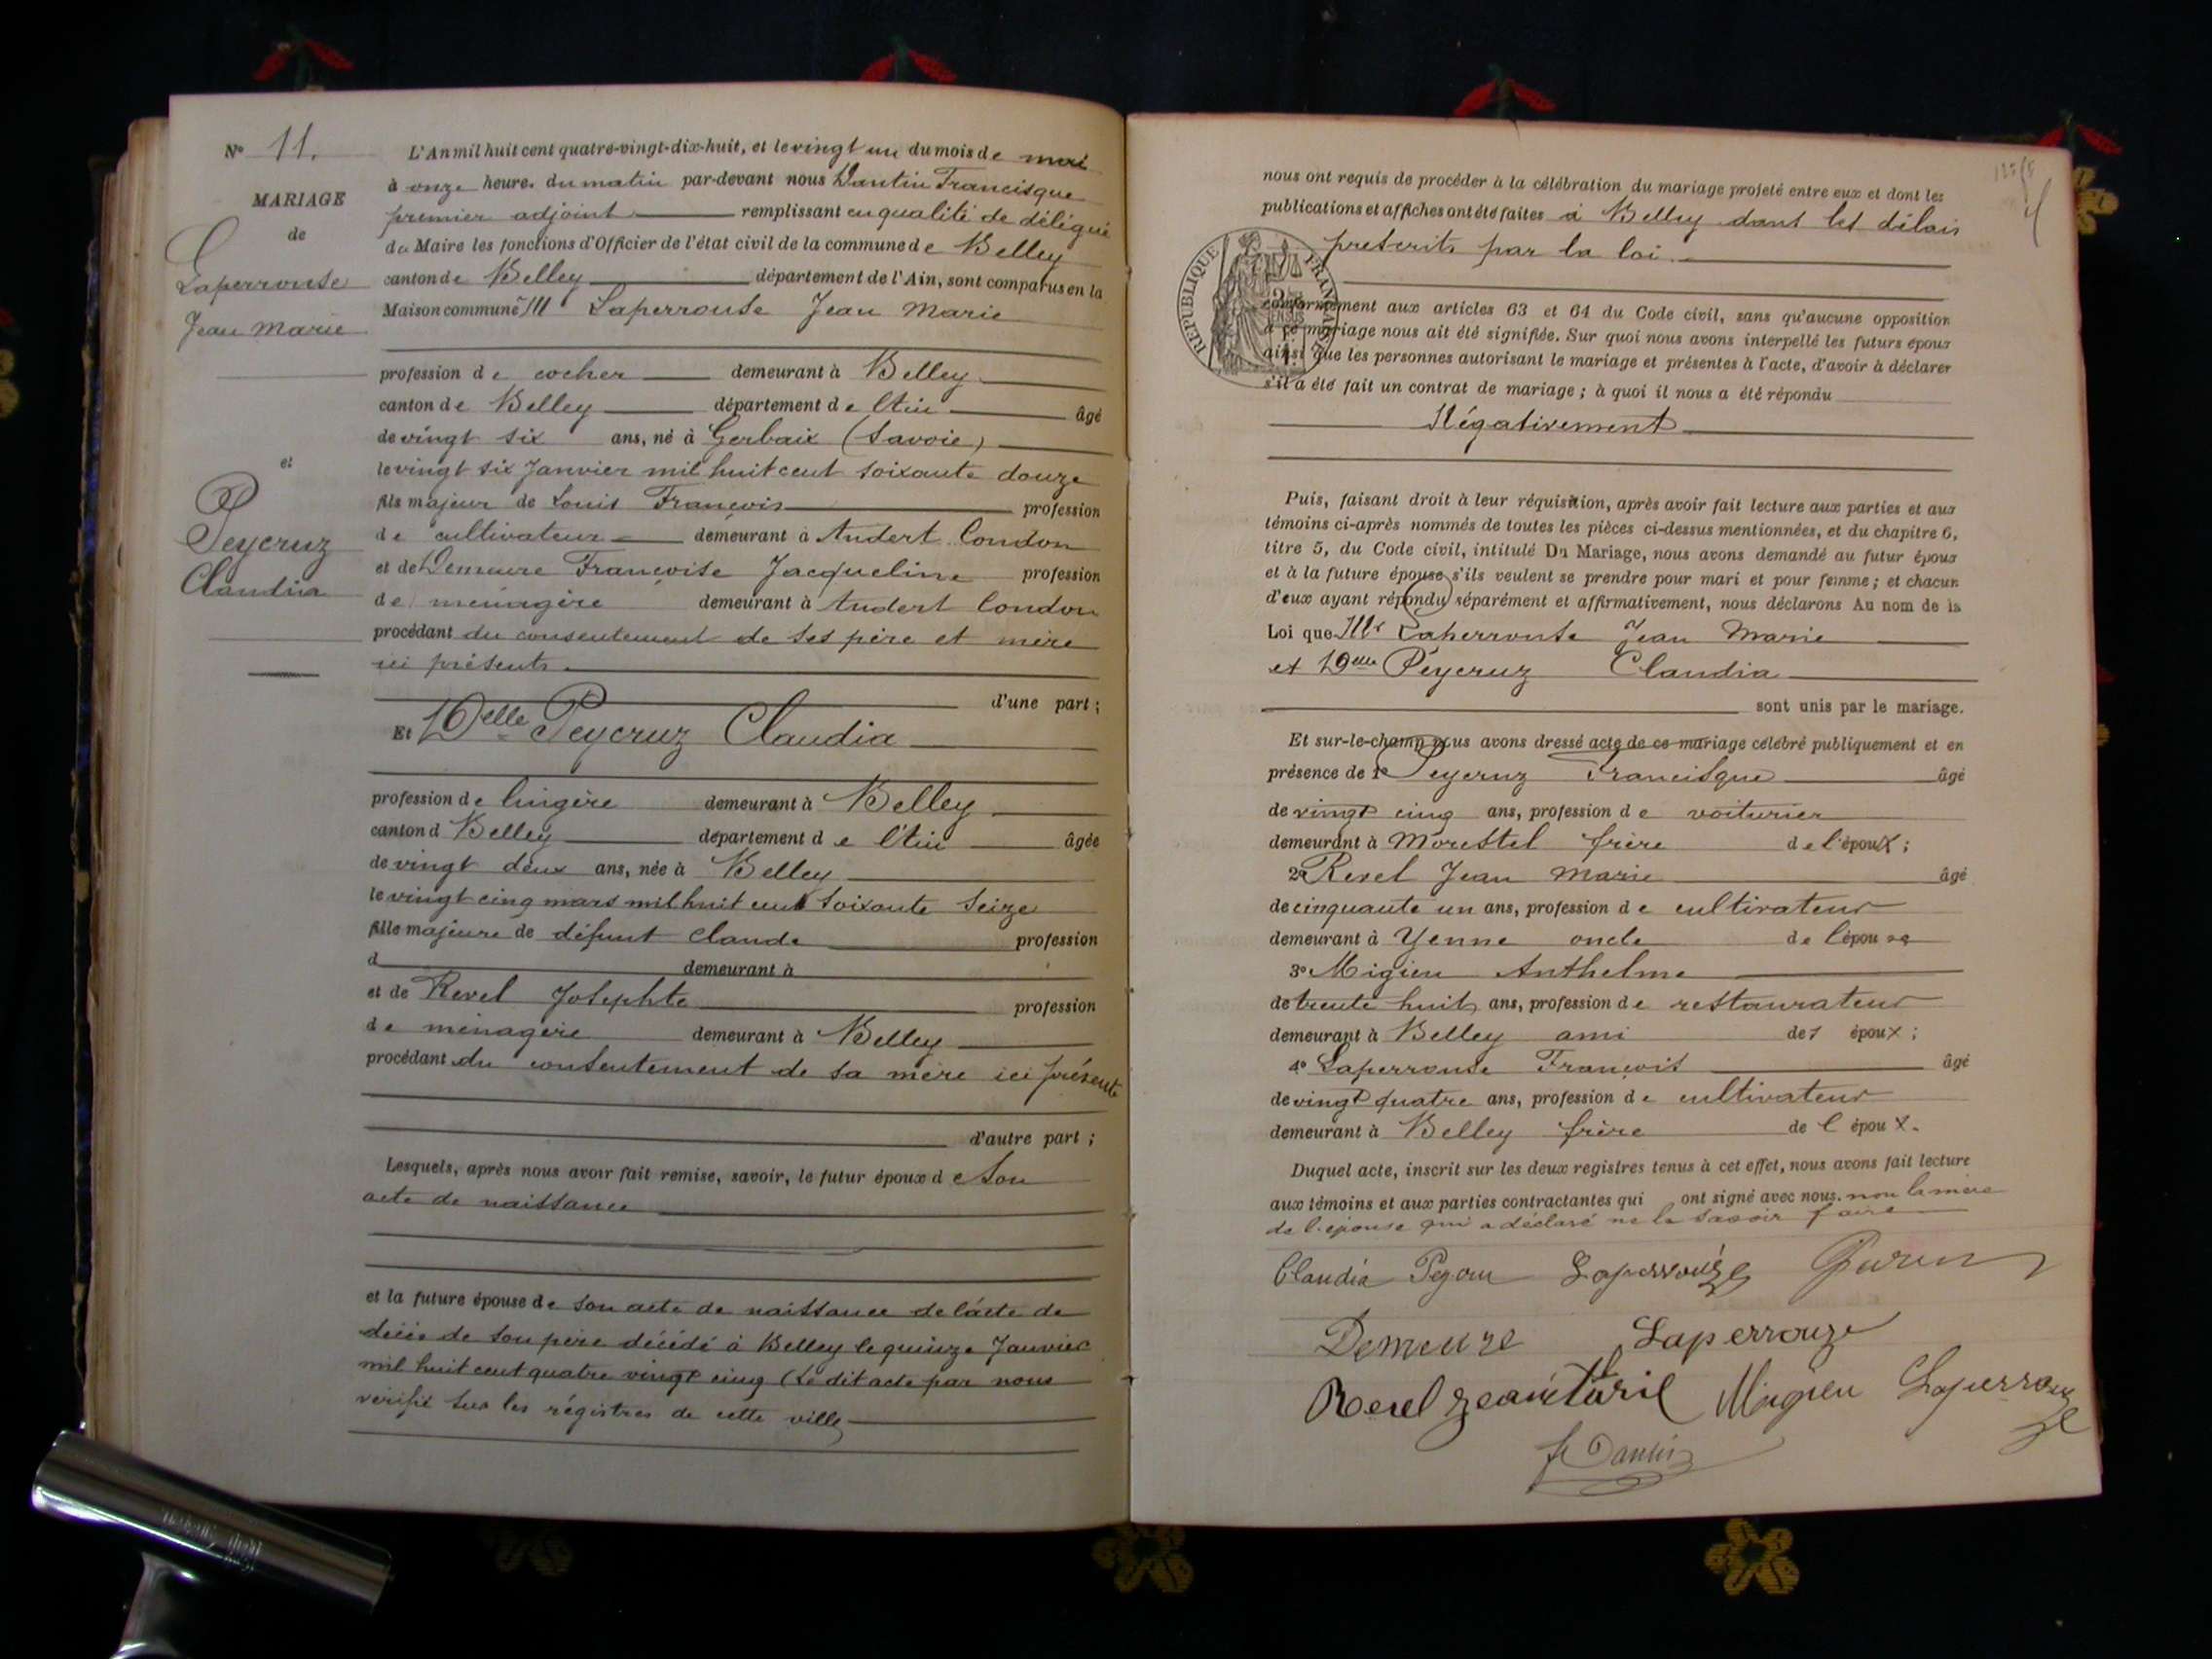 N° 11.
MARIAGE
de
Laperrouse
Jean Marie
et
Peycruz
Claudia
L'An mil huit cent quatre-vingt-dix-huit, et le vingt un du mois de mai
à onze heures du matin par-devant nous Dantin Francisque
premier adjoint remplissant en qualité de délégué
du Maire les fonctions d'Officier de l'état civil de la commune de Belley
canton de Belley département de l'Ain, sont comparus en la
Maison commune Mr Laperrouse Jean Marie
profession de cocher demeurant à Belley
canton de Belley département de l'Ain âgé
de vingt six ans, né à Gerbaix (Savoie)
le vingt six Janvier mil huit cent soixante douze
fils majeur de Louis François profession
de cultivateur demeurant à Andert Condon
et de Demeure Françoise Jacqueline profession
de ménagère demeurant à Andert Condon
procédant du consentement de ses père et mère
ici présents
d'une part ;
Et Delle Peycruz Claudia
profession de lingère demeurant à Belley
canton d Belley département de l'Ain âgée
de vingt deux ans, née à Belley
le vingt cinq mars mil huit cent soixante seize
fille majeure de défunt Claude profession
d demeurant à
et de Revel Josephte profession
de ménagère demeurant à Belley
procédant du consentement de sa mère ici présente
d'autre part ;
Lesquels, après nous avoir fait remise, savoir, le futur époux de son
acte de naissance
et la future épouse de son acte de naissance de l'acte de
décès de son père décédé à Belley le quinze Janvier
mil huit cent quatre vingt cinq (Le dit acte par nous
vérifié sur les régistres de cette ville
nous ont requis de procéder à la célébration du mariage projeté entre eux et dont les
publications et affiches ont été faites à Belley dans les délais
prescrits par la loi.
RÉPUBLIQUE FRANÇAISE
conformément aux articles 63 et 64 du Code civil, sans qu'aucune opposition
à ce mariage nous ait été signifiée. Sur quoi nous avons interpellé les futurs époux
ainsi que les personnes autorisant le mariage et présentes à l'acte, d'avoir à déclarer
s'il a été fait un contrat de mariage ; à quoi il nous a été répondu
Négativement
Puis, faisant droit à leur réquisition, après avoir fait lecture aux parties et aux
témoins ci-après nommés de toutes les pièces ci-dessus mentionnées, et du chapitre 6,
titre 5, du Code civil, intitulé Du Mariage, nous avons demandé au futur époux
et à la future épouse s'ils veulent se prendre pour mari et pour femme ; et chacun
d'eux ayant répondu séparément et affirmativement, nous déclarons Au nom de la
Loi que Mr Laperrouse Jean Marie
et Delle Peycruz Claudia
sont unis par le mariage.
Et sur-le-champ nous avons dressé acte de ce mariage célébré publiquement et en
présence de 1° Peycruz Francisque âgé
de vingt cinq ans, profession de voiturier
demeurant à Morestel frère de l'époux ;
2° Revel Jean Marie âgé
de cinquante un ans, profession de cultivateur
demeurant à Yenne oncle de l'épouse
3° Migieu Anthelme
de trente huit ans, profession de restaurateur
demeurant à Belley ami des époux ;
4° Laperrouse François âgé
de vingt quatre ans, profession de cultivateur
demeurant à Belley frère de l époux.
Duquel acte, inscrit sur les deux registres tenus à cet effet, nous avons fait lecture
aux témoins et aux parties contractantes qui ont signé avec nous. non la mère
de l'épouse qui a déclaré ne le savoir faire
Claudia Laperrouze
Demeure Laperrouze
Revel Migieu Laperrouze
Dantin